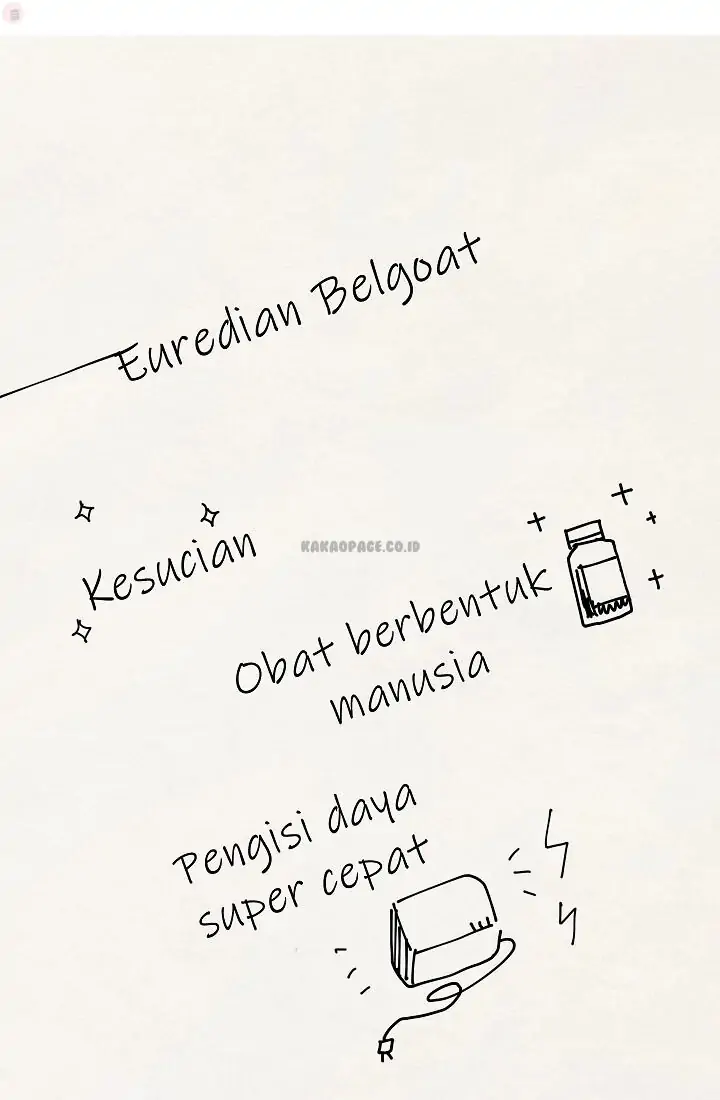 Euredian Belgoat
Kesucian
KAKAOPAGE.CO.ID
Obat berbentuk
manusia
Pengisi daya
super cepat